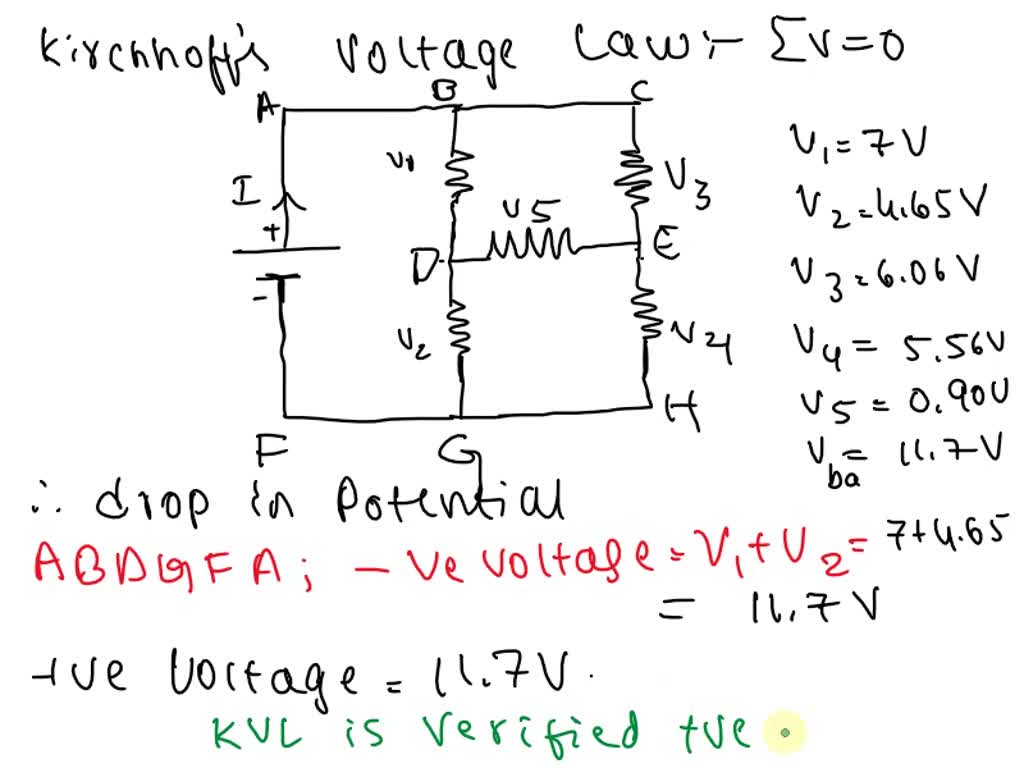 Kirchhoff's Voltage Law:- ΣV=0
A B C
V1 V3
I
+
V5
D E
-
V2 V4
F G H
V1 = 7V
V2 = 4.65V
V3 = 6.06V
V4 = 5.56V
V5 = 0.90V
Vba = 11.7V
∴ drop in Potential
ABDGFA; -ve voltage = V1 + V2 = 7+4.65
= 11.7V
+ve Voltage = 11.7V.
KVL is verified +ve